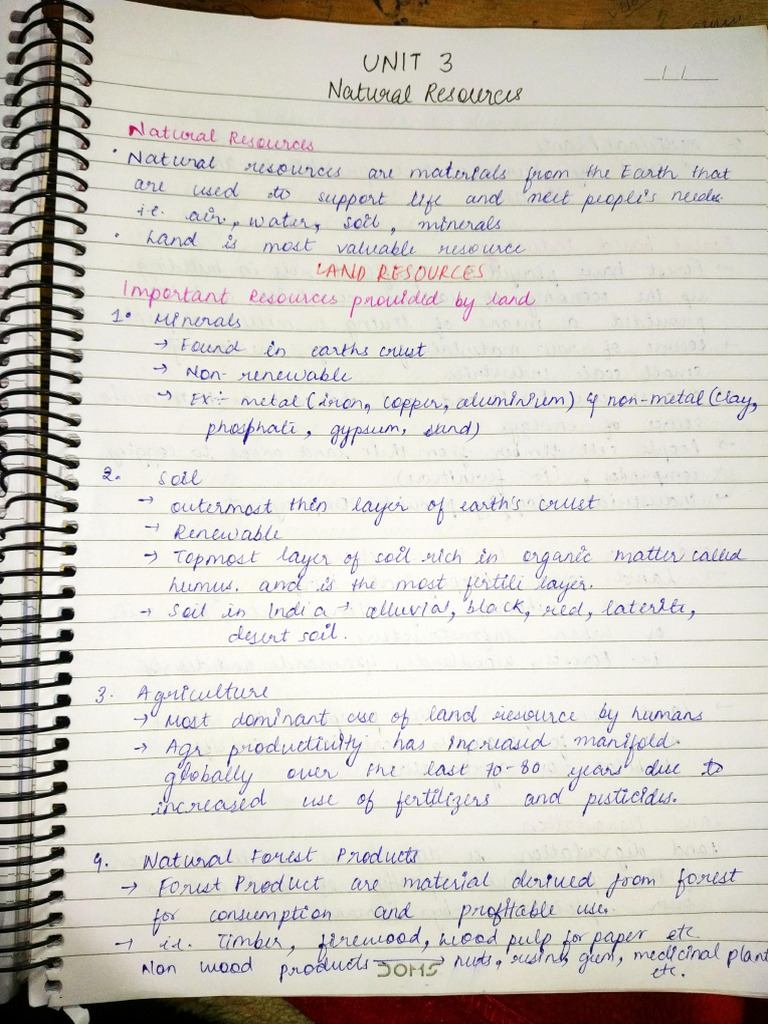 UNIT 3
Natural Resources
Natural Resources
• Natural resources are materials from the Earth that
are used to support life and meet people's needs.
i.e. air, water, soil, minerals
• Land is most valuable resource
LAND RESOURCES
Important Resources provided by land
1. Minerals
→ Found in earths crust
→ Non-renewable
→ Ex:- metal (iron, copper, aluminium) & non-metal (clay,
phosphate, gypsum, sand)
2. Soil
→ outermost thin layer of earth's crust
→ Renewable
→ Topmost layer of soil rich in organic matter called
humus. and is the most fertile layer.
→ Soil in India → alluvial, black, red, laterite,
desert soil.
3. Agriculture
→ Most dominant use of land resource by humans
→ Agr productivity has increased manifold
globally over the last 70-80 years due to
increased use of fertilizers and pesticides.
4. Natural Forest Products
→ Forest Product are material derived from forest
for consumption and profitable use.
→ i.e. Timber, firewood, wood pulp for paper etc.
Non wood products → nuts, resins, gum, medicinal plant
etc.
DOMS